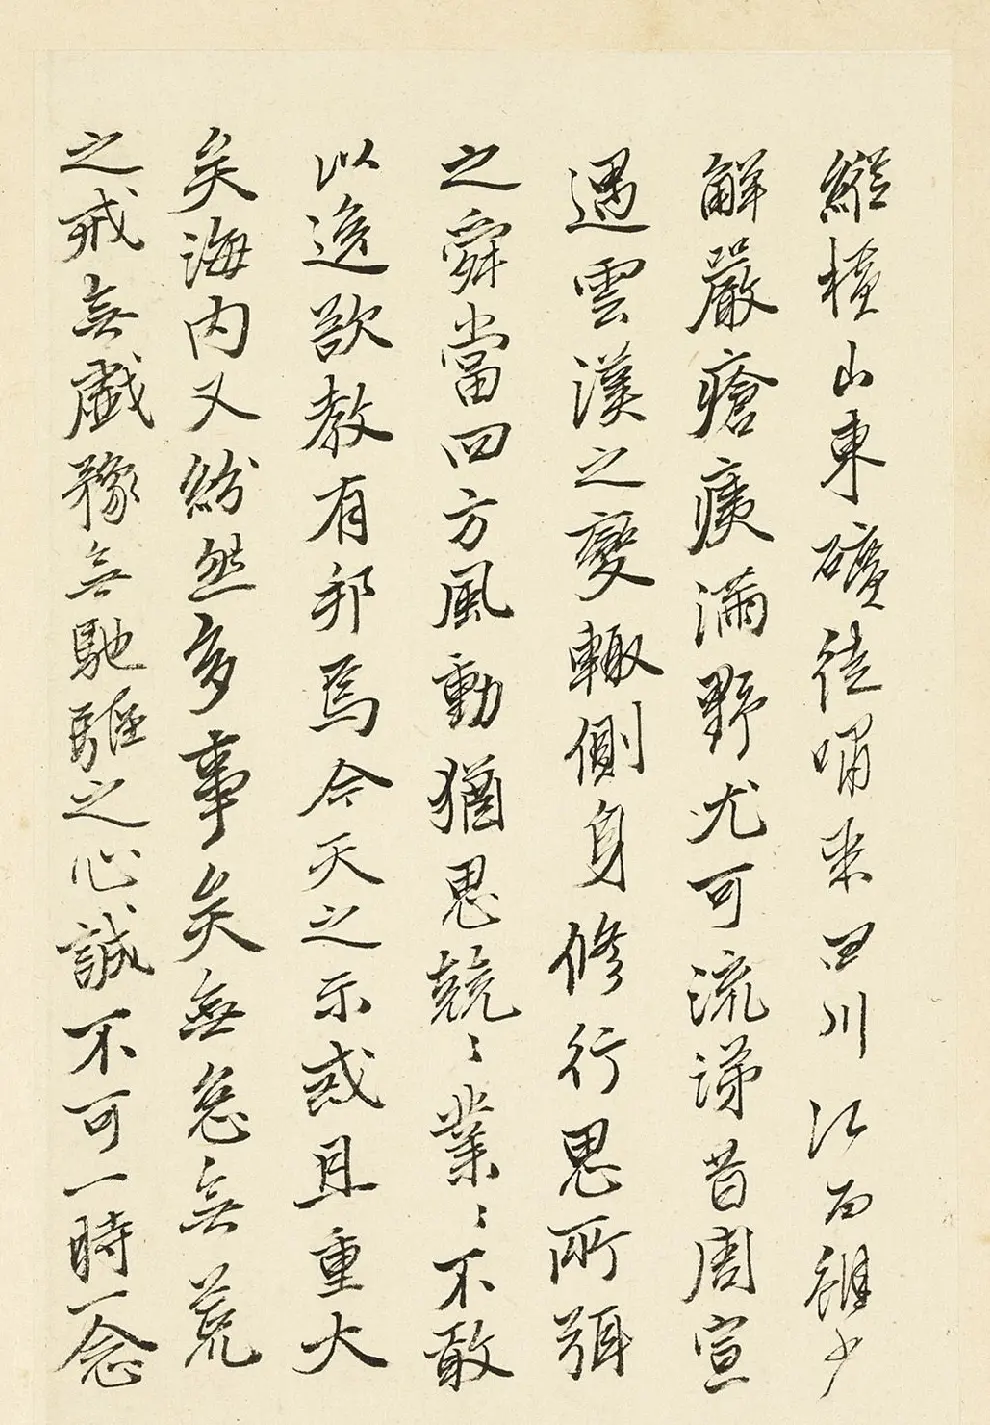 縱橫山東礦徒嘯聚四川江西雖少
解嚴瘡痍滿野尤可流涕昔周宣
遇雲漢之變輙側身修行思所弭
之舜當四方風動猶思兢〻業〻不敢
以逸欲教有邦焉今天之示戒且重大
矣海内又紛然多事矣無怠無荒
之戒無戲豫無馳驅之心誠不可一時一念